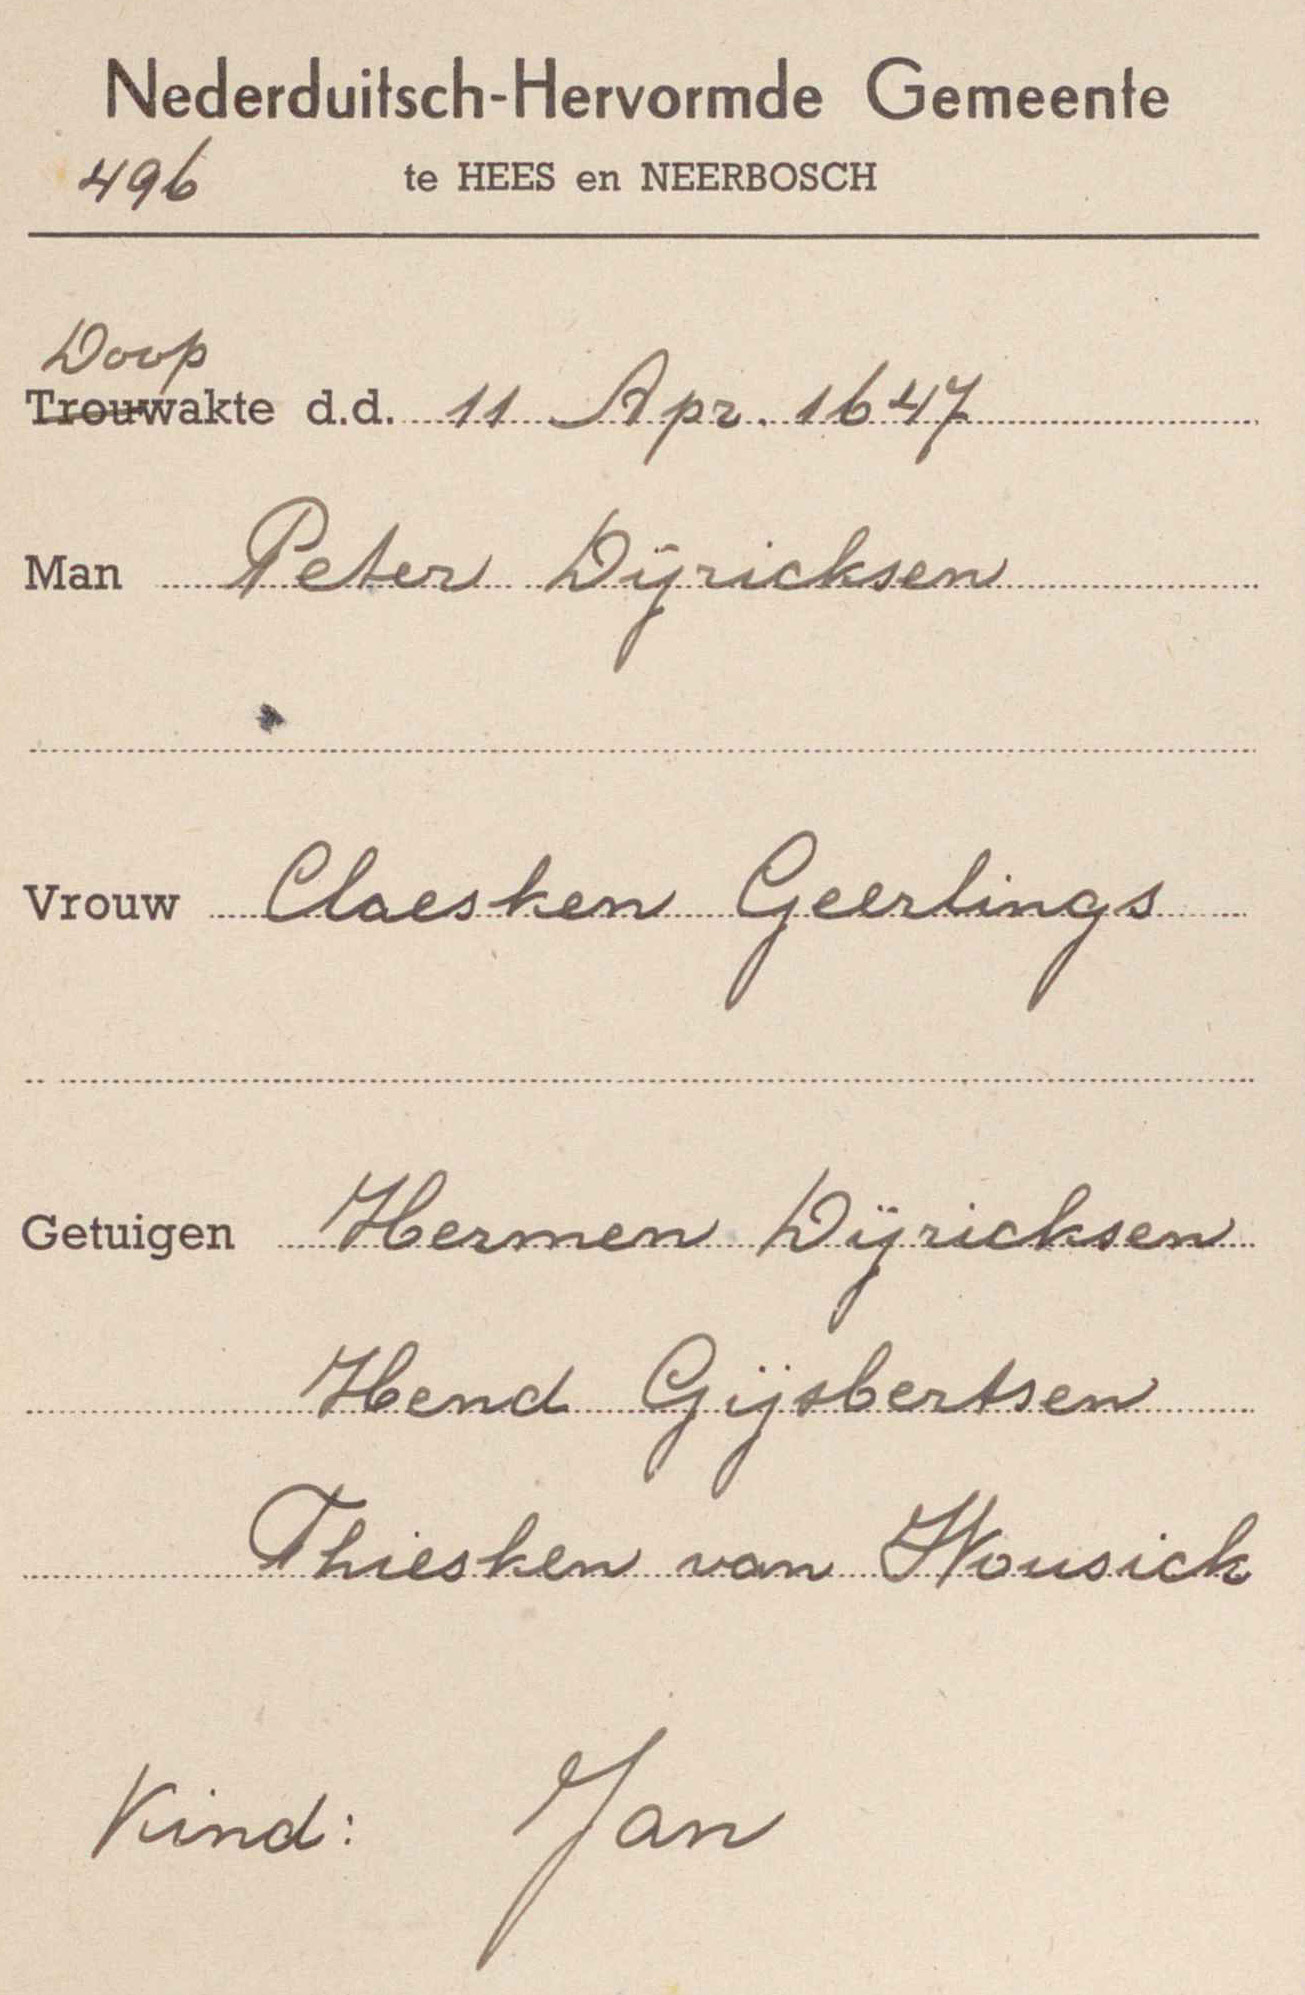 Nederduitsch-Hervormde Gemeente
496 te HEES en NEERBOSCH
Doop
Trouwakte d.d. 11 Apr. 1647
Man Peter Dÿricksen
Vrouw Claesken Geerlings
Getuigen Hermen Dÿricksen
Hend Gijsbertsen
Thiesken van Wousick
Kind: Jan